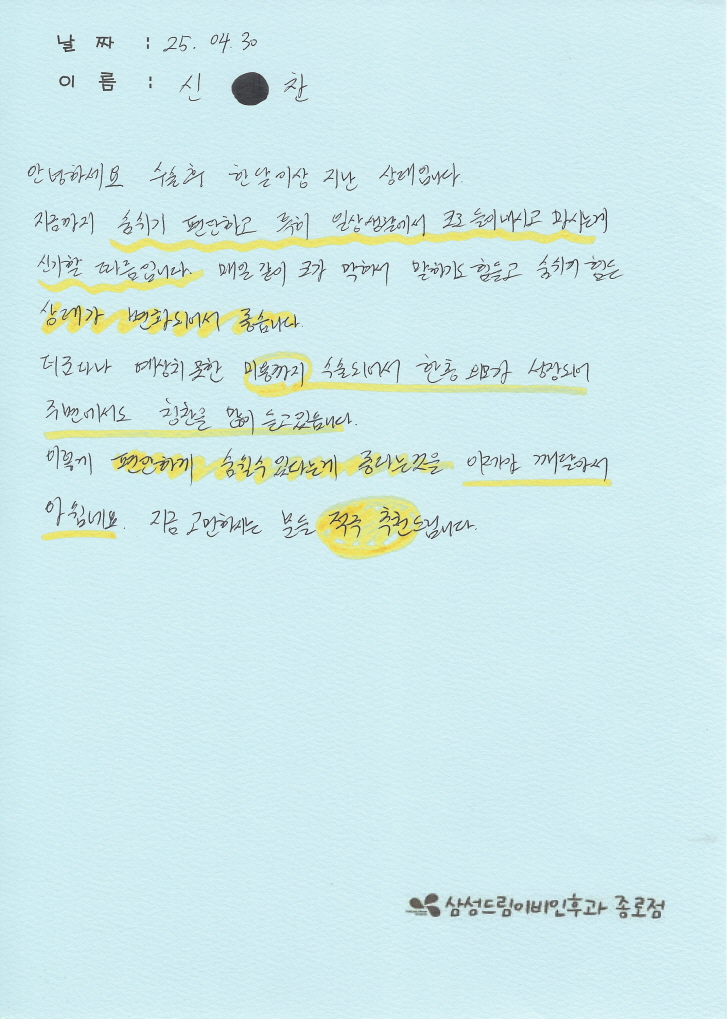 날 짜 : 25. 04. 30
이 름 : 신 찬
안녕하세요 수술후 한달이상 지난 상태입니다.
지금까지 숨쉬기 편안하고 특히 일상생활에서 코로 들이내시고 마시는게
신기할 따름입니다. 매일 같이 코가 막혀서 말하기도 힘들고 숨쉬기 힘든
상태가 변화되어서 좋습니다.
더군다나 예상치 못한 미용까지 수술되어서 한층 외모가 성장되어
주변에서도 칭찬을 많이 듣고있습니다.
이렇게 편안하게 숨쉴수 있다는게 좋다는것을 이제감 깨달아서
아쉽네요. 지금 고민하시는 분들 적극 추천드립니다.
삼성드림이비인후과 종로점